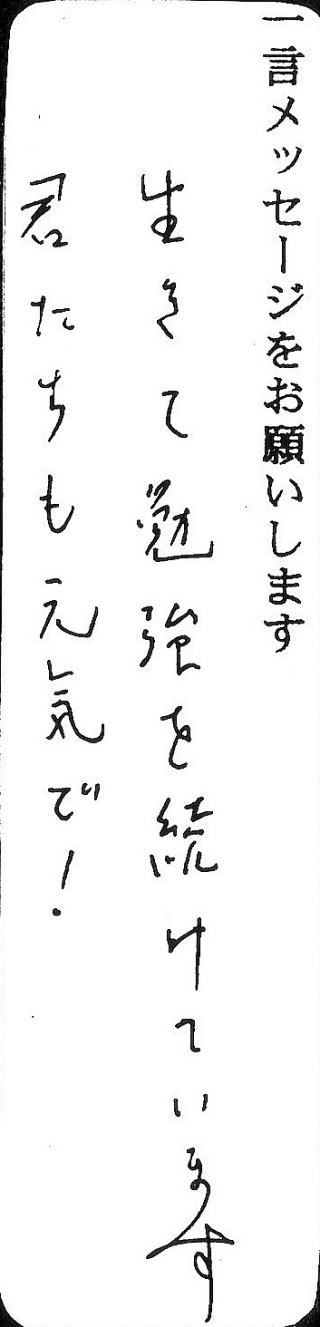 一言メッセージをお願いします
生きて勉強を続けています
君たちも元気で！